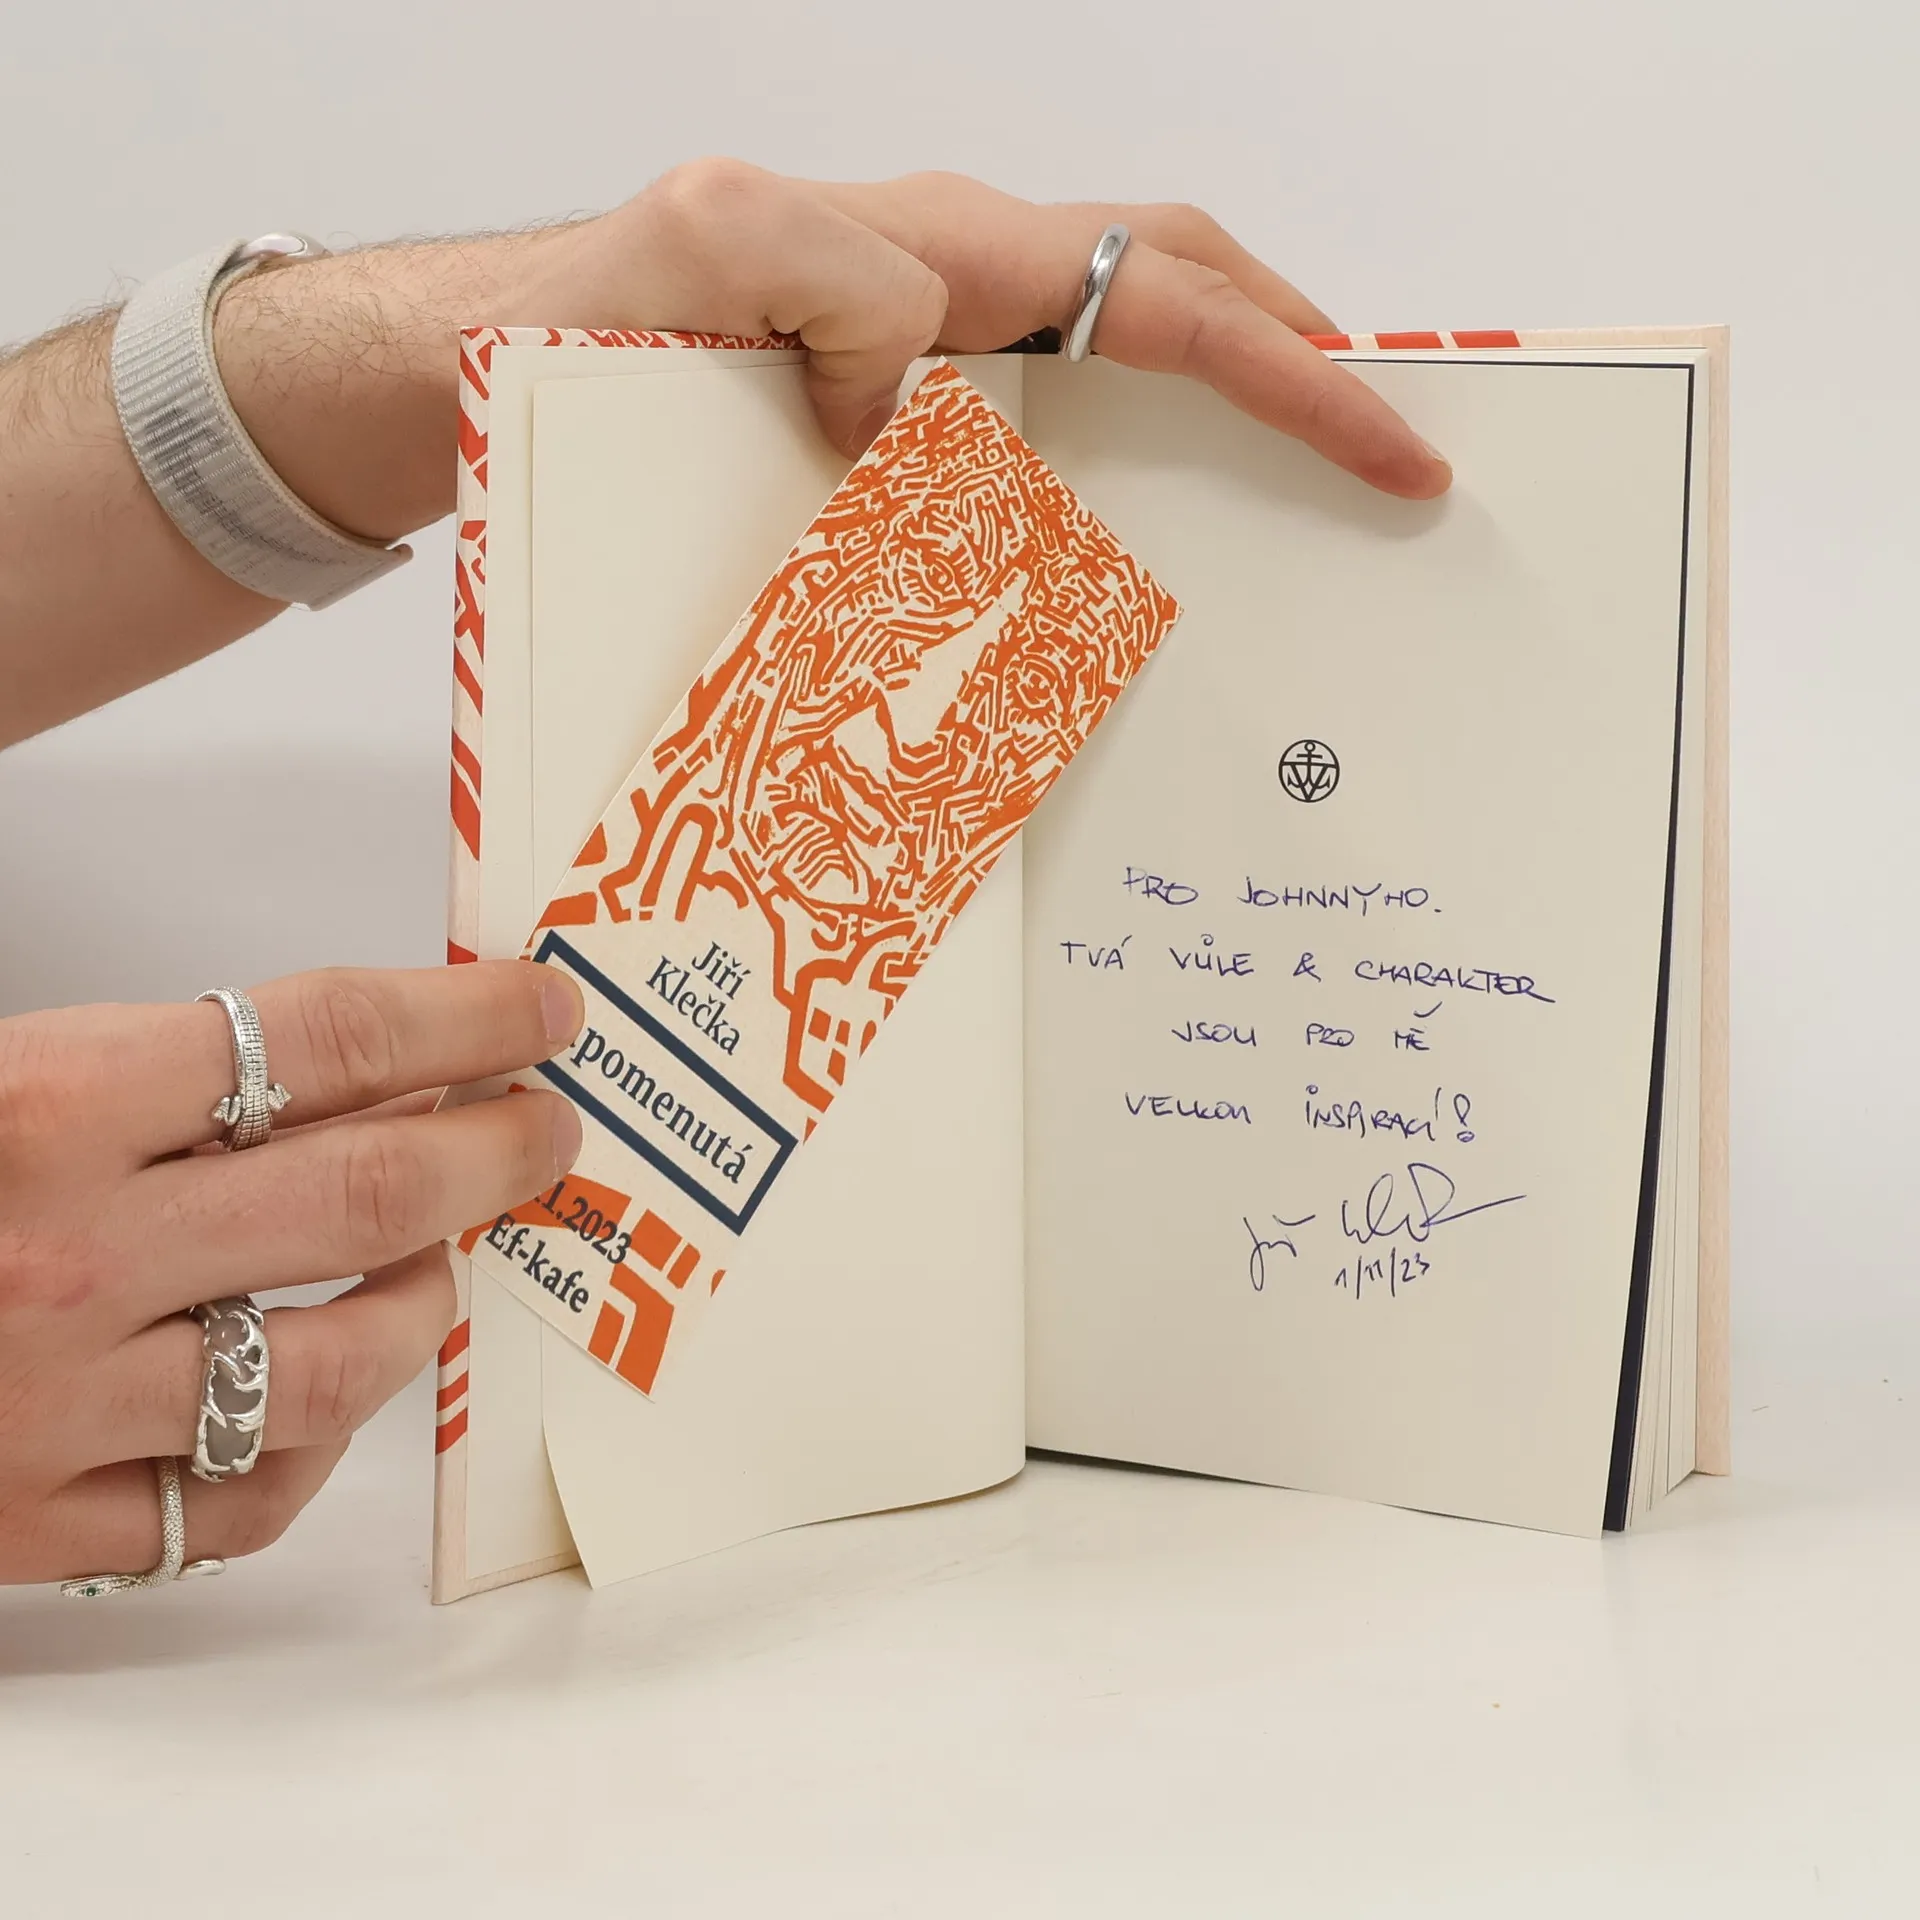 Jiří
Klečka
pomenutá
.11.2023
Ef-kafe
PRO JOHNNYHO.
TVÁ VŮLE & CHARAKTER
JSOU PRO MĚ
VELKOU INSPIRACÍ!
Jiří
1/11/23